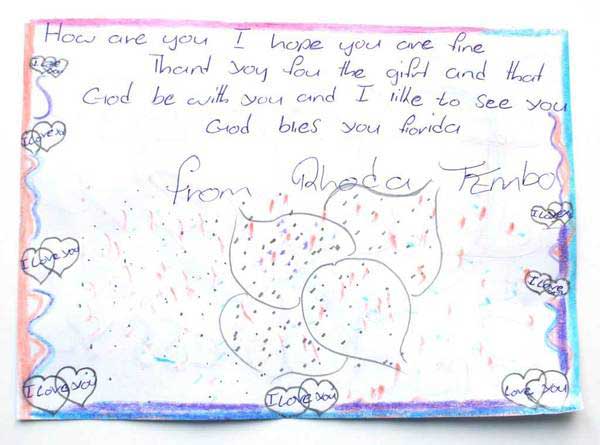 How are you I hope you are fine
Thant yoy fou the gifrt and that
God be with you and I lilke to see you
God bles you florida
from Rhoda TEmbo
I Love you
I Love you
I Love you
I Love you
I Love you
I Love you
I Love you
Love you